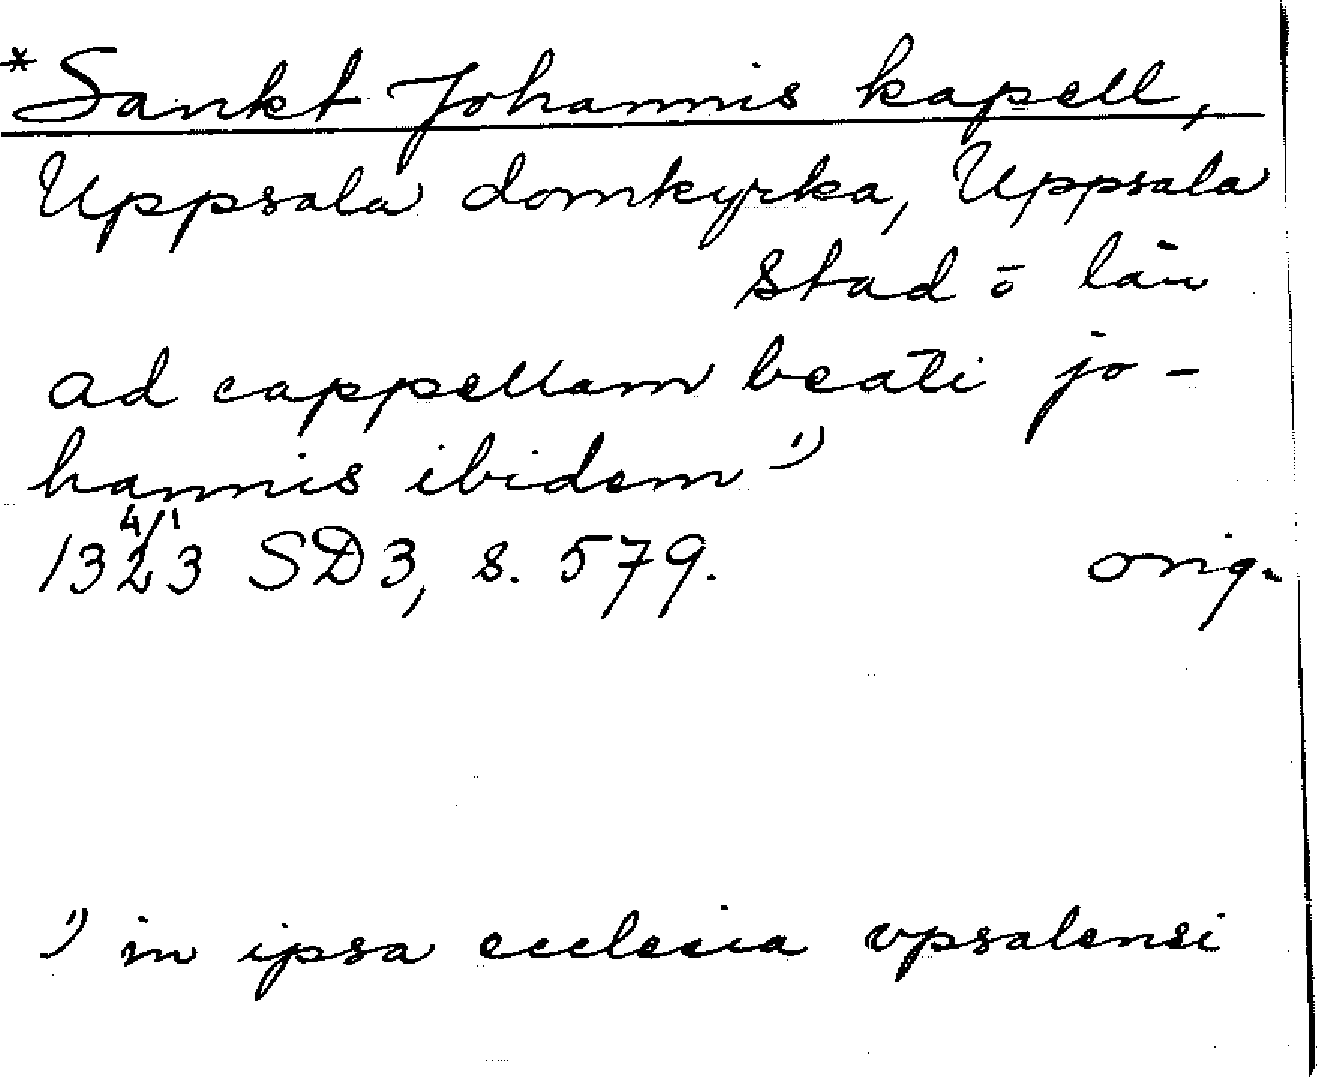 *Sankt Johannis kapell,
Uppsala domkyrka, Uppsala
stad ō län
ad cappellam beati jo-
hannis ibidem 1)
4/1
1323 SD3, s. 579. orig.
1) in ipsa ecclesia vpsalensi